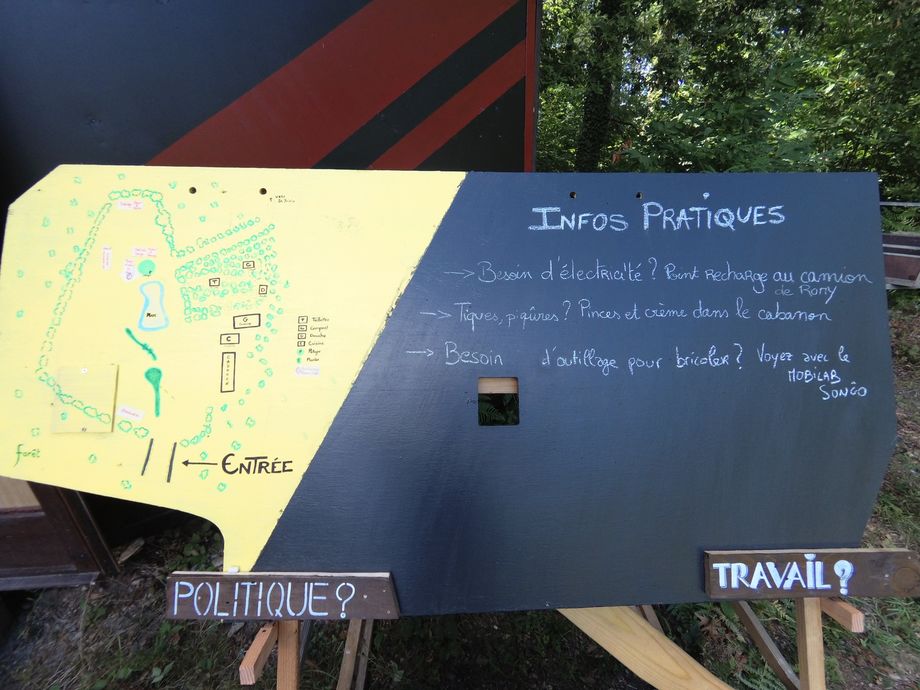 INFOS PRATIQUES
→ Besoin d'électricité ? Point RECHARGE au camion
de Romy
→ Tiques, piqûres ? Pinces et crème dans le cabanon
→ Besoin d'outillage pour bricoler ? Voyez avec le
MOBILAB
SONGO
Mare
T Toilettes
Co Compost
D Douche
C Cuisine
Potager
forêt
← ENTRÉE
POLITIQUE?
TRAVAIL?